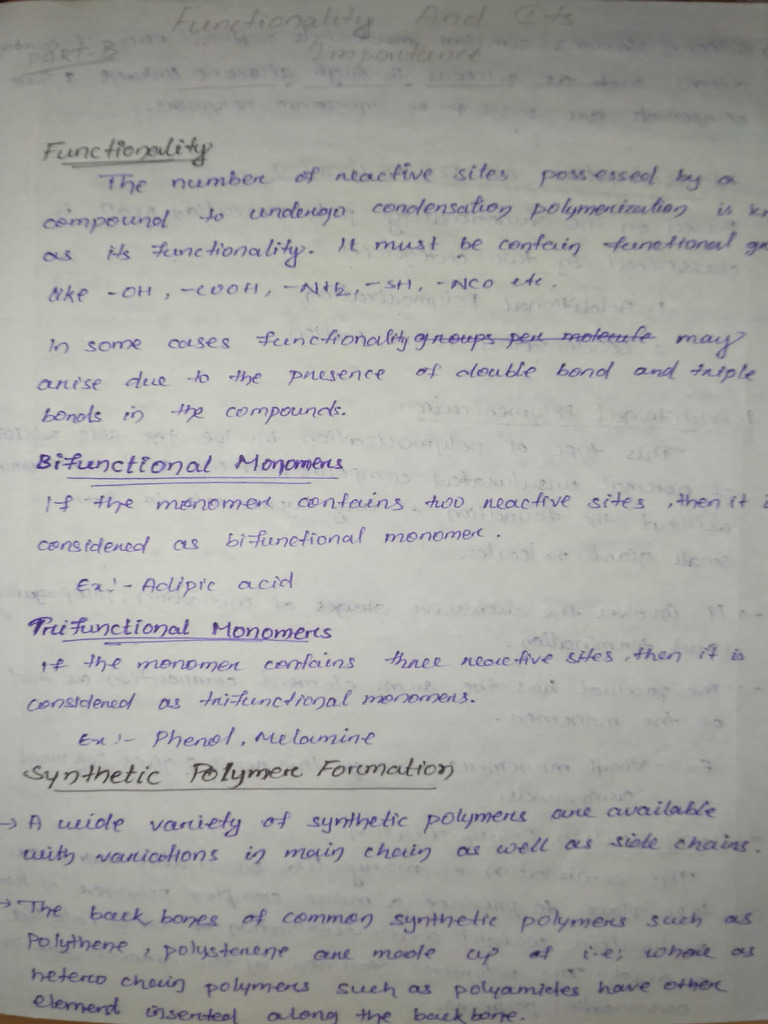 Functionality And Its
Importance
PART-B
Functionality
The number of reactive sites possessed by a
compound to undergo condensation polymerization is kn
as its functionality. It must be contain functional g
like -OH, -COOH, -NH2, -SH, -NCO etc.
In some cases functionality groups per molecule may
arise due to the presence of double bond and triple
bonds in the compounds.
Bifunctional Monomers
If the monomer contains two reactive sites, then it i
considered as bifunctional monomer.
Ex:- Adipic acid
Trifunctional Monomers
If the monomer contains three reactive sites, then it is
considered as trifunctional monomers.
Ex:- Phenol, Melamine
Synthetic Polymer Formation
→ A wide variety of synthetic polymers are available
with variations in main chain as well as side chains.
→ The back bones of common synthetic polymers such as
Polythene, polysterene are made up of i.e; where as
hetero chain polymers such as polyamides have other
element inserted along the backbone.